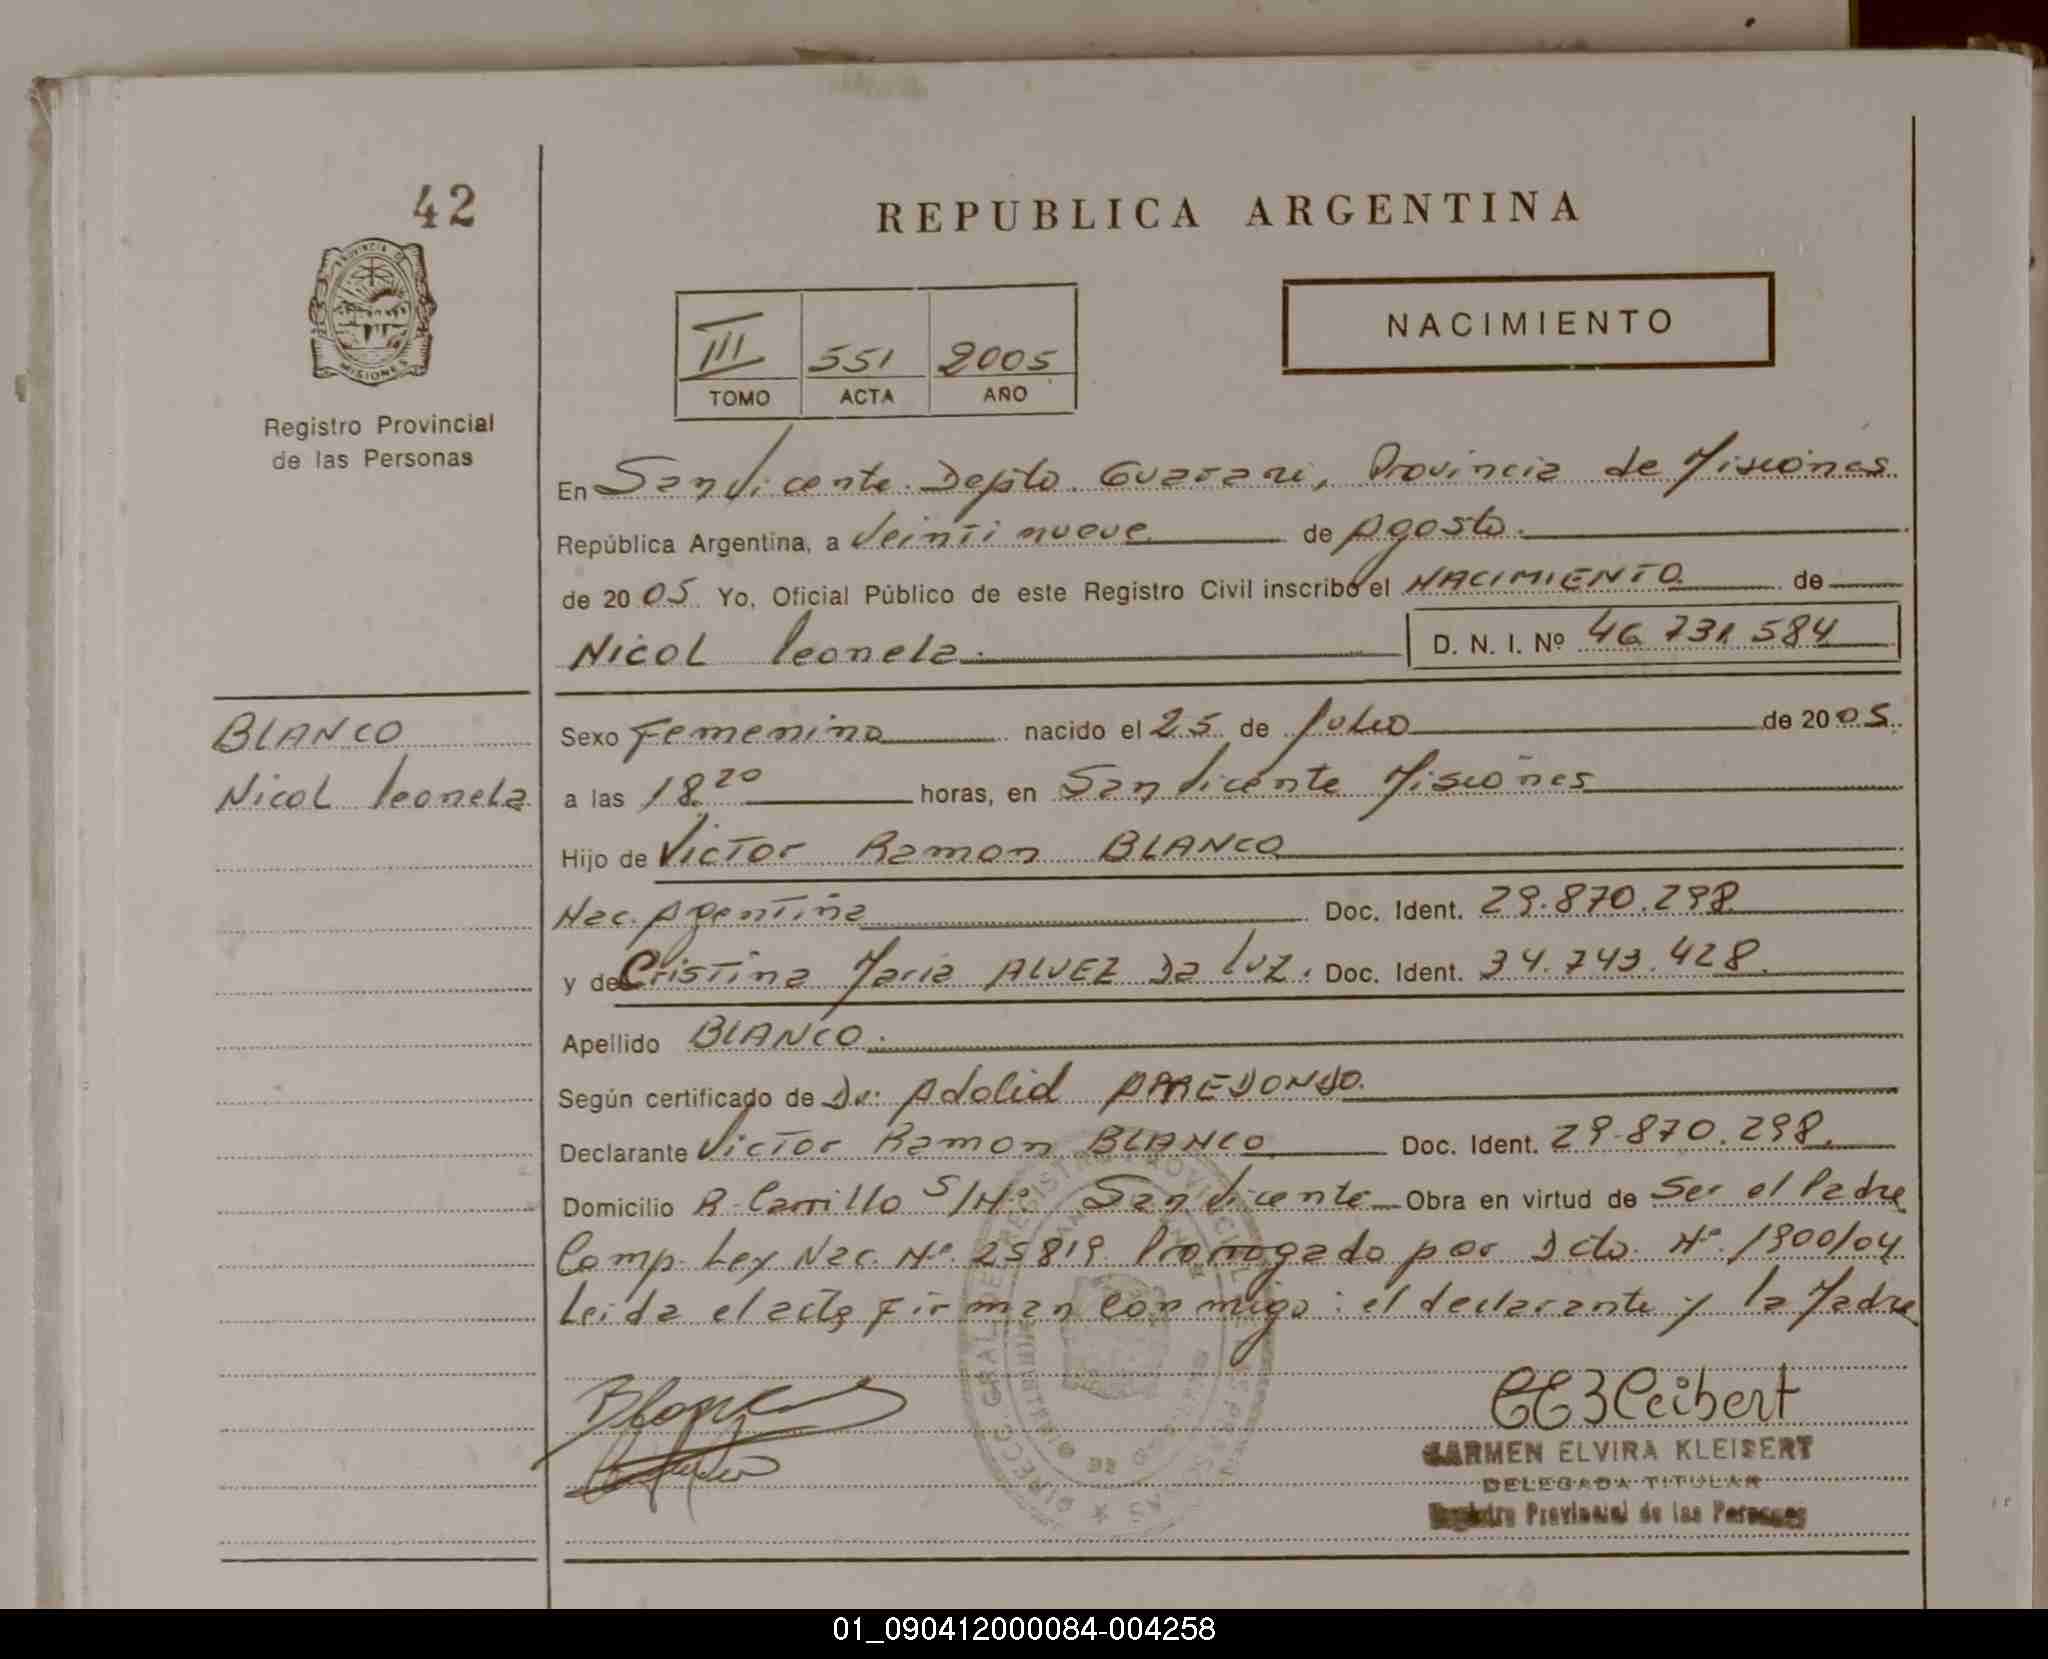 42
REPUBLICA ARGENTINA
PROVINCIA DE
MISIONES
Registro Provincial
de las Personas
III 551 2005
TOMO ACTA AÑO
NACIMIENTO
En San Vicente. Depto. Guarani, Provincia de Misiones
República Argentina, a Veinti nueve de Agosto.
de 2005 Yo, Oficial Público de este Registro Civil inscribo el NACIMIENTO de
Nicol Leonela. D. N. I. Nº 46.731.584
BLANCO
Nicol Leonela
Sexo Femenino nacido el 25 de Julio de 2005.
a las 18.20 horas, en San Vicente Misiones
Hijo de Victor Ramon BLANCO
Nac. Agentina Doc. Ident. 29.870.298
y de Cristina Maria ALVEZ Da LUZ. Doc. Ident. 34.743.428.
Apellido BLANCO.
Según certificado de Dr: Adolid ARREDONDO.
Declarante Victor Ramon BLANCO Doc. Ident. 29.870.298.
Domicilio R. Carrillo S/Nº San Vicente Obra en virtud de Ser el Padre
Comp. Ley Nac. Nº 25819 Prorrogado por Dcto. Nº 1900/04
Leida el acta firman con migo: el declarante y la Madre
CARMEN ELVIRA KLEISERT
DELEGADA TITULAR
Registro Provincial de las Personas
01_090412000084-004258